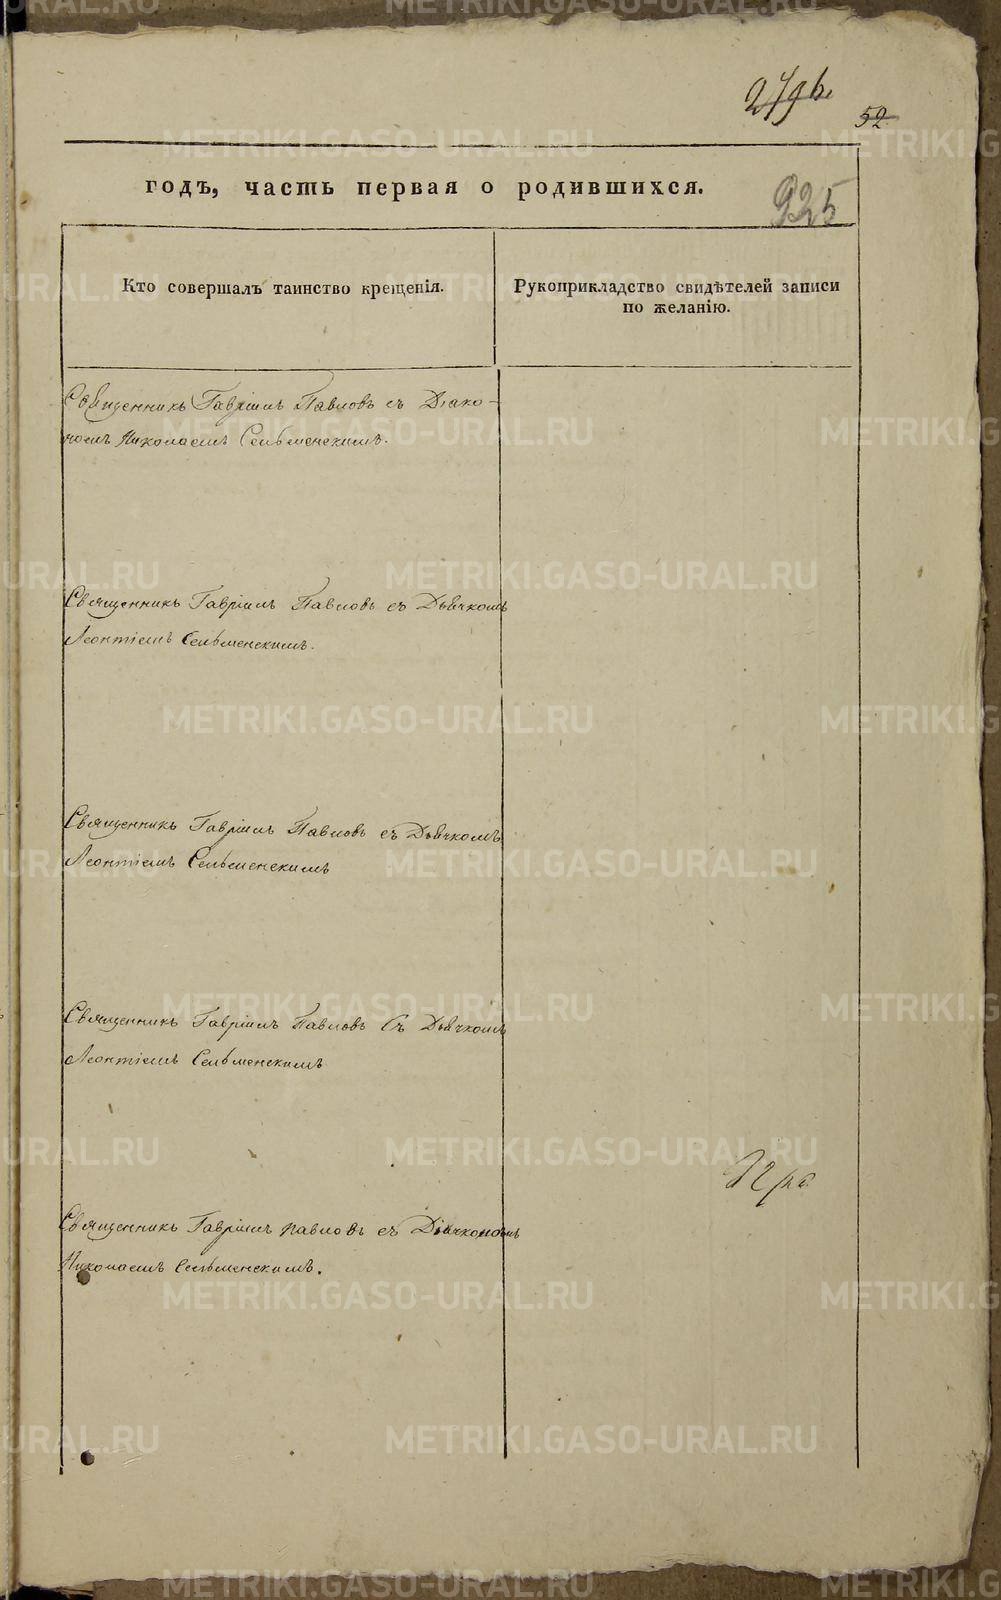 52
925
годъ, часть первая о родившихся.
Кто совершалъ таинство крещенія.
Рукоприкладство свидѣтелей записи
по желанію.
Священникъ Гавріилъ Павловъ съ Діако-
номъ Николаемъ Сельменскимъ.
Священникъ Гавріилъ Павловъ съ Дьячкомъ
Леонтіемъ Сельменскимъ.
Священникъ Гавріилъ Павловъ съ Дьячкомъ
Леонтіемъ Сельменскимъ
Священникъ Гавріилъ Павловъ съ Дьячкомъ
Леонтіемъ Сельменскимъ
Священникъ Гавріилъ Павловъ съ
Николаемъ Сельменскимъ.
METRIKI.GASO-URAL.RU